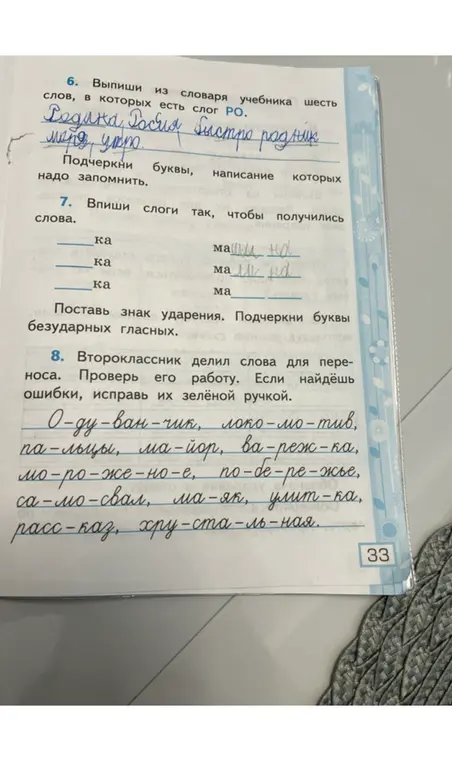 6. Выпиши из словаря учебника шесть
слов, в которых есть слог РО.
Родина, Россия, быстро родник
утро.
Подчеркни буквы, написание которых
надо запомнить.
7. Впиши слоги так, чтобы получились
слова.
___ка машина
___ка малина
___ка ма___ ___
Поставь знак ударения. Подчеркни буквы
безударных гласных.
8. Второклассник делил слова для пере-
носа. Проверь его работу. Если найдёшь
ошибки, исправь их зелёной ручкой.
О-ду-ван-чик, локо-мо-тив,
па-льцы, ма-йор, ва-реж-ка,
мо-ро-же-но-е, по-бе-ре-жье,
са-мо-свал, ма-як, улит-ка,
расс-каз, хру-ста-ль-ная.
33